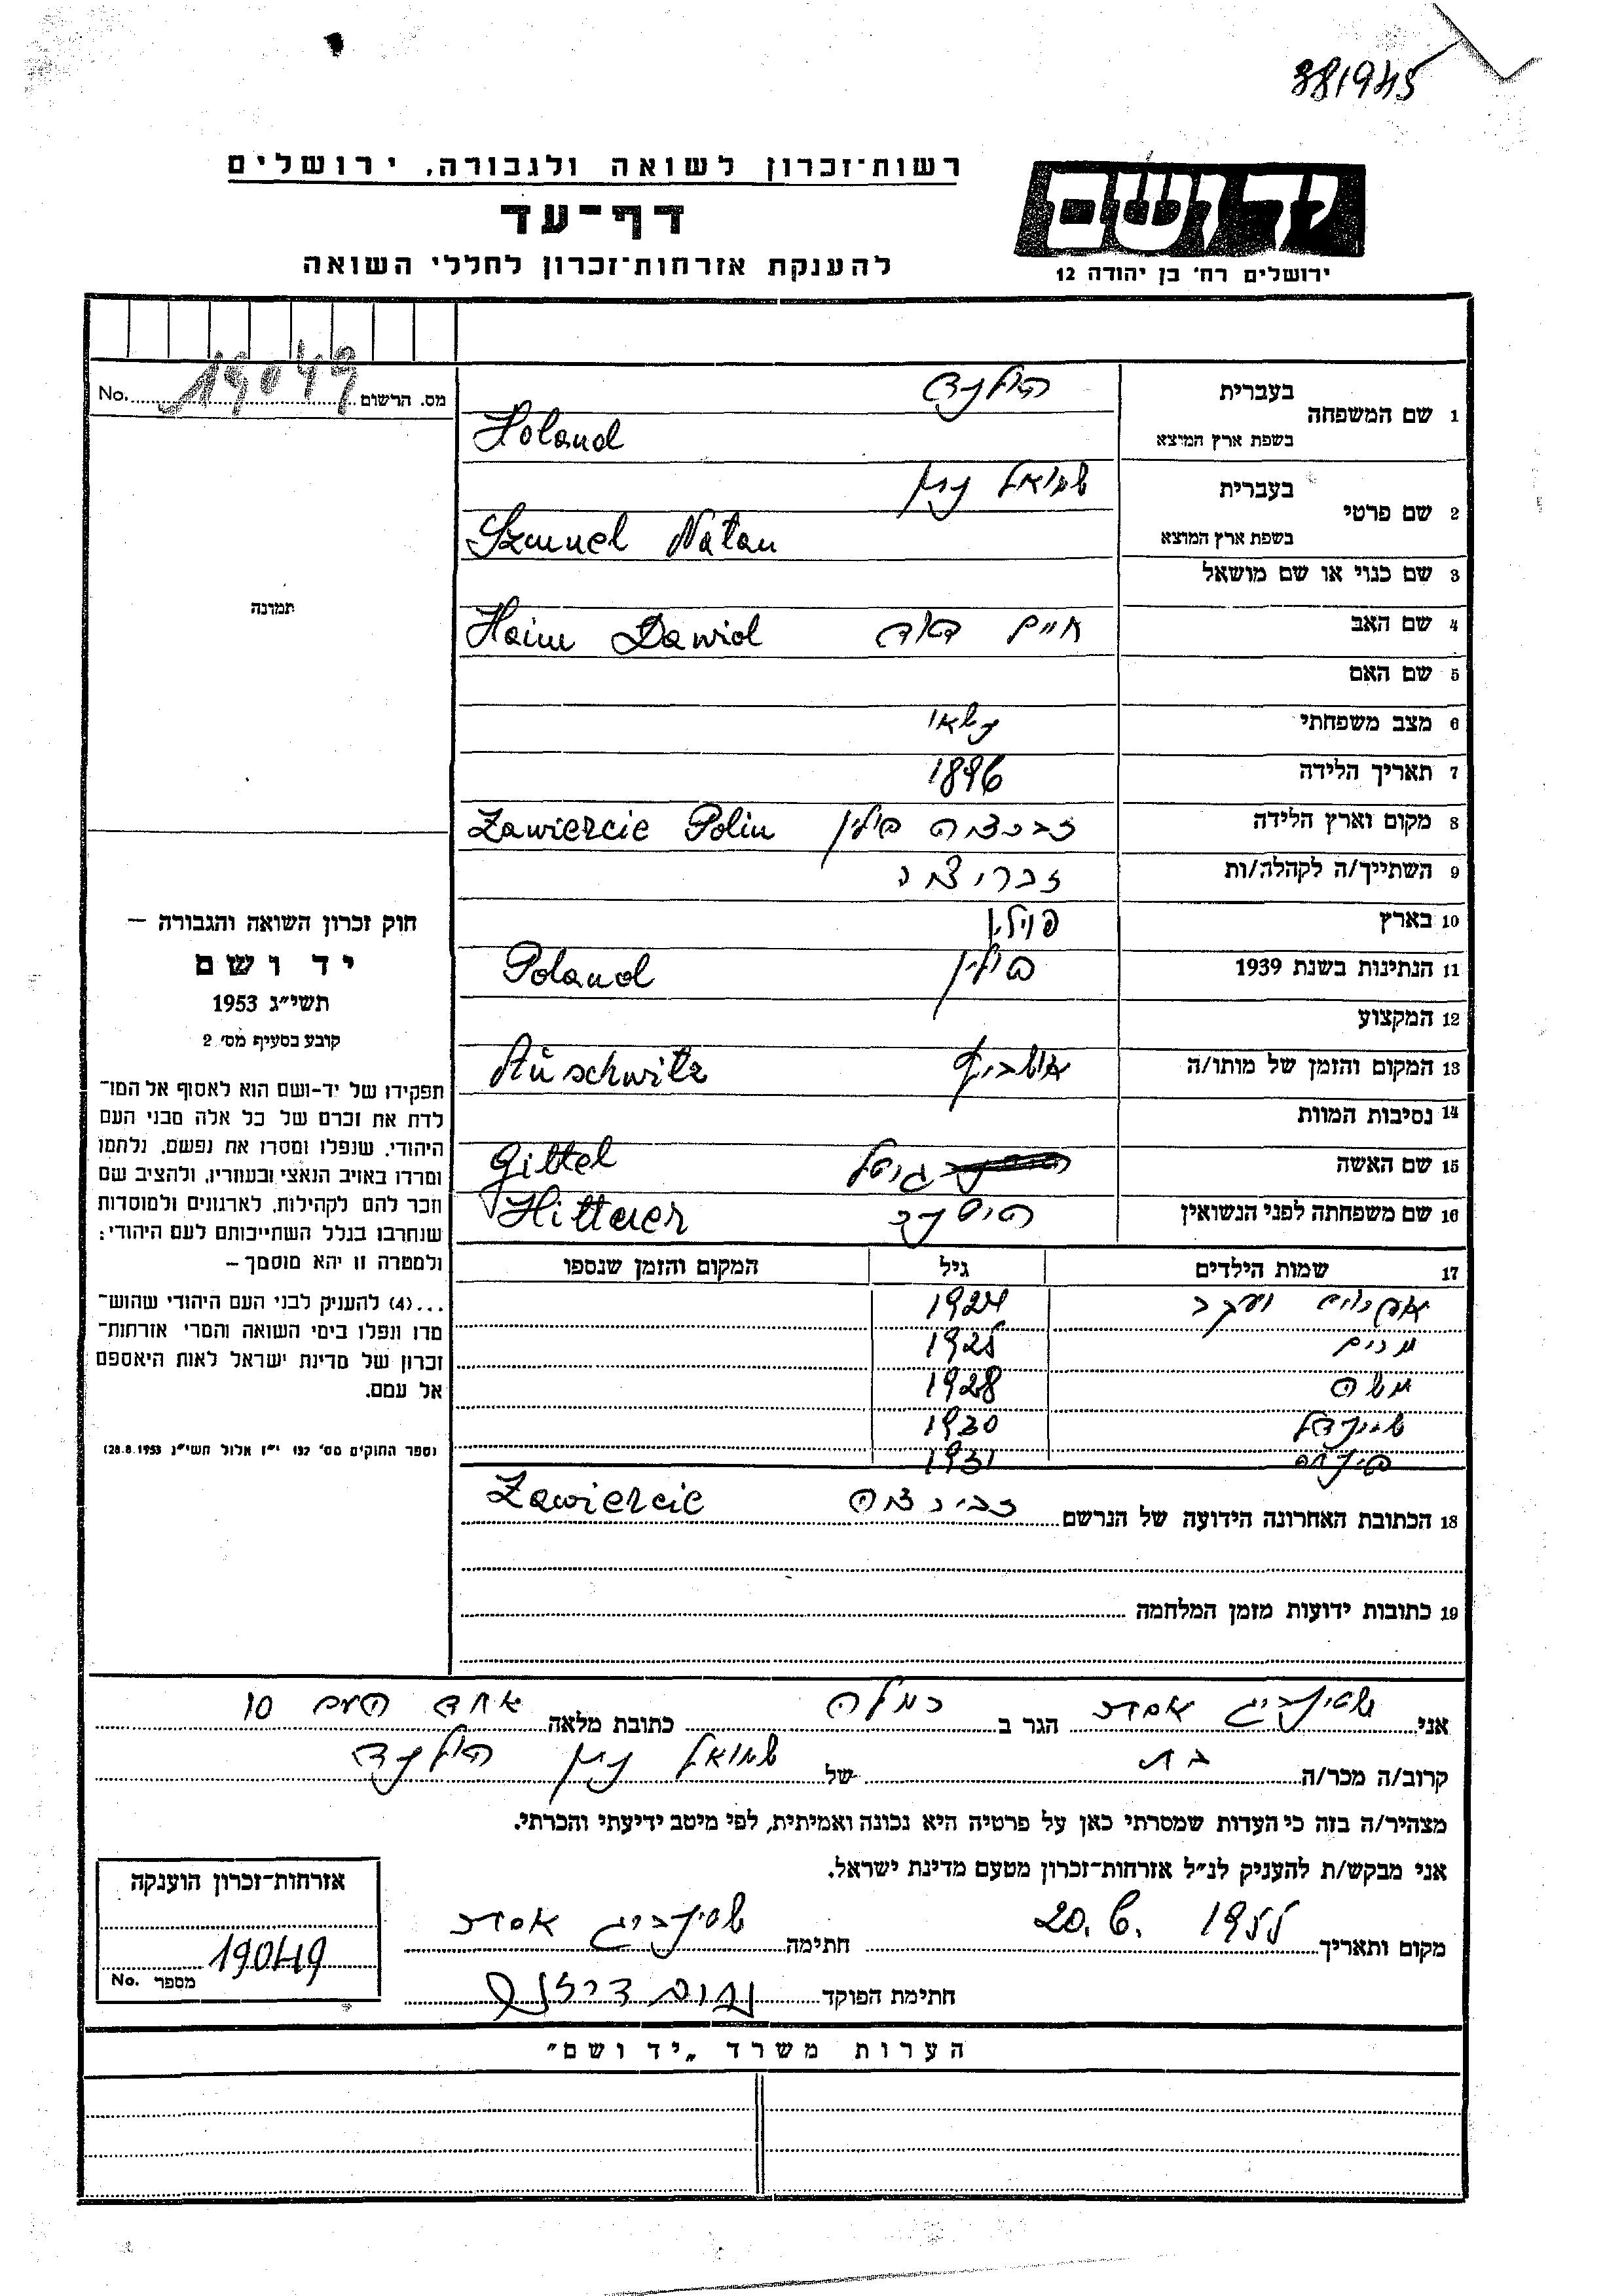 881945
רשות־זכרון לשואה ולגבורה, ירושלים
דף־עד
להענקת אזרחות־זכרון לחללי השואה
יד ושם
ירושלים רח׳ בן יהודה 12
No. 19049 מס. הרשום
1 שם המשפחה
בעברית הולנד
בשפת ארץ המוצא Holand
2 שם פרטי
בעברית שמואל נתן
בשפת ארץ המוצא Szmuel Natan
3 שם כנוי או שם מושאל
4 שם האב חיים דוד Haim Dawid
5 שם האם
6 מצב משפחתי נשאוי
7 תאריך הלידה 1896
8 מקום וארץ הלידה פולין Zawiercie Polin
9 השתייך/ה לקהלה/ות
10 בארץ פוילין
11 הנתינות בשנת 1939 פולין Poland
12 המקצוע
13 המקום והזמן של מותו/ה אושביץ Auschwitz
14 נסיבות המוות
15 שם האשה גיטל Gittel
16 שם משפחתה לפני הנשואין Hittner
17 שמות הילדים גיל המקום והזמן שנספו
יעקב 1924
מרים 1925
משה 1928
שיינדל 1930
פינחס 1931
18 הכתובת האחרונה הידועה של הנרשם Zawiercie
19 כתובות ידועות מזמן המלחמה
תמונה
חוק זכרון השואה והגבורה —
יד ושם
תשי״ג 1953
קובע בסעיף מס׳ 2
תפקידו של יד-ושם הוא לאסוף אל המו־
לדת את זכרם של כל אלה מבני העם
היהודי, שנפלו ומסרו את נפשם, נלחמו
ומרדו באויב הנאצי ובעוזריו, ולהציב שם
וזכר להם לקהילות, לארגונים ולמוסדות
שנחרבו בגלל השתייכותם לעם היהודי;
ולמטרה זו יהא מוסמך —
...(4) להעניק לבני העם היהודי שהוש־
מדו ונפלו בימי השואה והמרי אזרחות־
זכרון של מדינת ישראל לאות היאספם
אל עמם.
(ספר החוקים מס׳ 132 י״ז אלול תשי״ג 28.8.1953)
אני שטינברג אסתר הגר ב רמלה כתובת מלאה אחד העם 10
קרוב/ה מכר/ה בת של שמואל נתן הולנד
מצהיר/ה בזה כי העדות שמסרתי כאן על פרטיה היא נכונה ואמיתית, לפי מיטב ידיעתי והכרתי.
אני מבקש/ת להעניק לנ״ל אזרחות־זכרון מטעם מדינת ישראל.
מקום ותאריך 20.6. 1955 חתימה שטינברג אסתר
חתימת הפוקד
אזרחות־זכרון הוענקה
19049
No. מספר
הערות משרד „יד ושם״